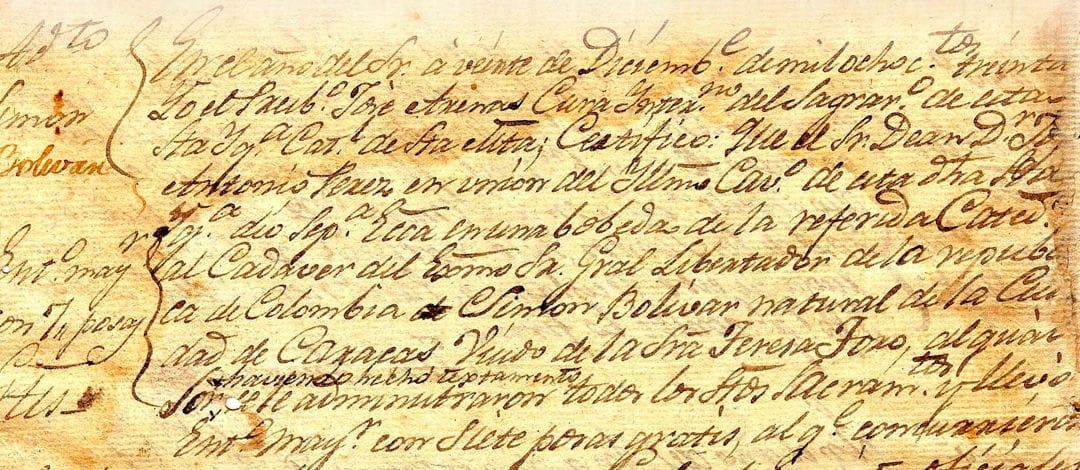 Adto
Simón
Bolivár
Entº mayr
con 7 posas
Gs
tis
En el año del Sr. á veinte de Diciembe. de mil ochoctos. treinta
Yo el Presb.º José Arenas Cura Ynterno. del Sagrarº. de esta
Sta Yga Catl. de Sta Mta; Certifico: Que el Sr. Dean Dr
Antonio Perez en union del Yllmo Cavº. de esta dha Sta
Yga. dio Sepª Ecca en una bobeda de la referida Cated.
al Cadaver del Exmo Sr. Gral Libertador de la republi
ca de Colombia Simón Bolívar natural de la Ciu
dad de Caracas Viudo de la Sra Teresa Toro, al quál
haviendo hecho testamento
Sor se le administraron todos los Stos Sacramtos. y llevó
Entº. Mayr con Siete posas gratis, al q.º concurriéron